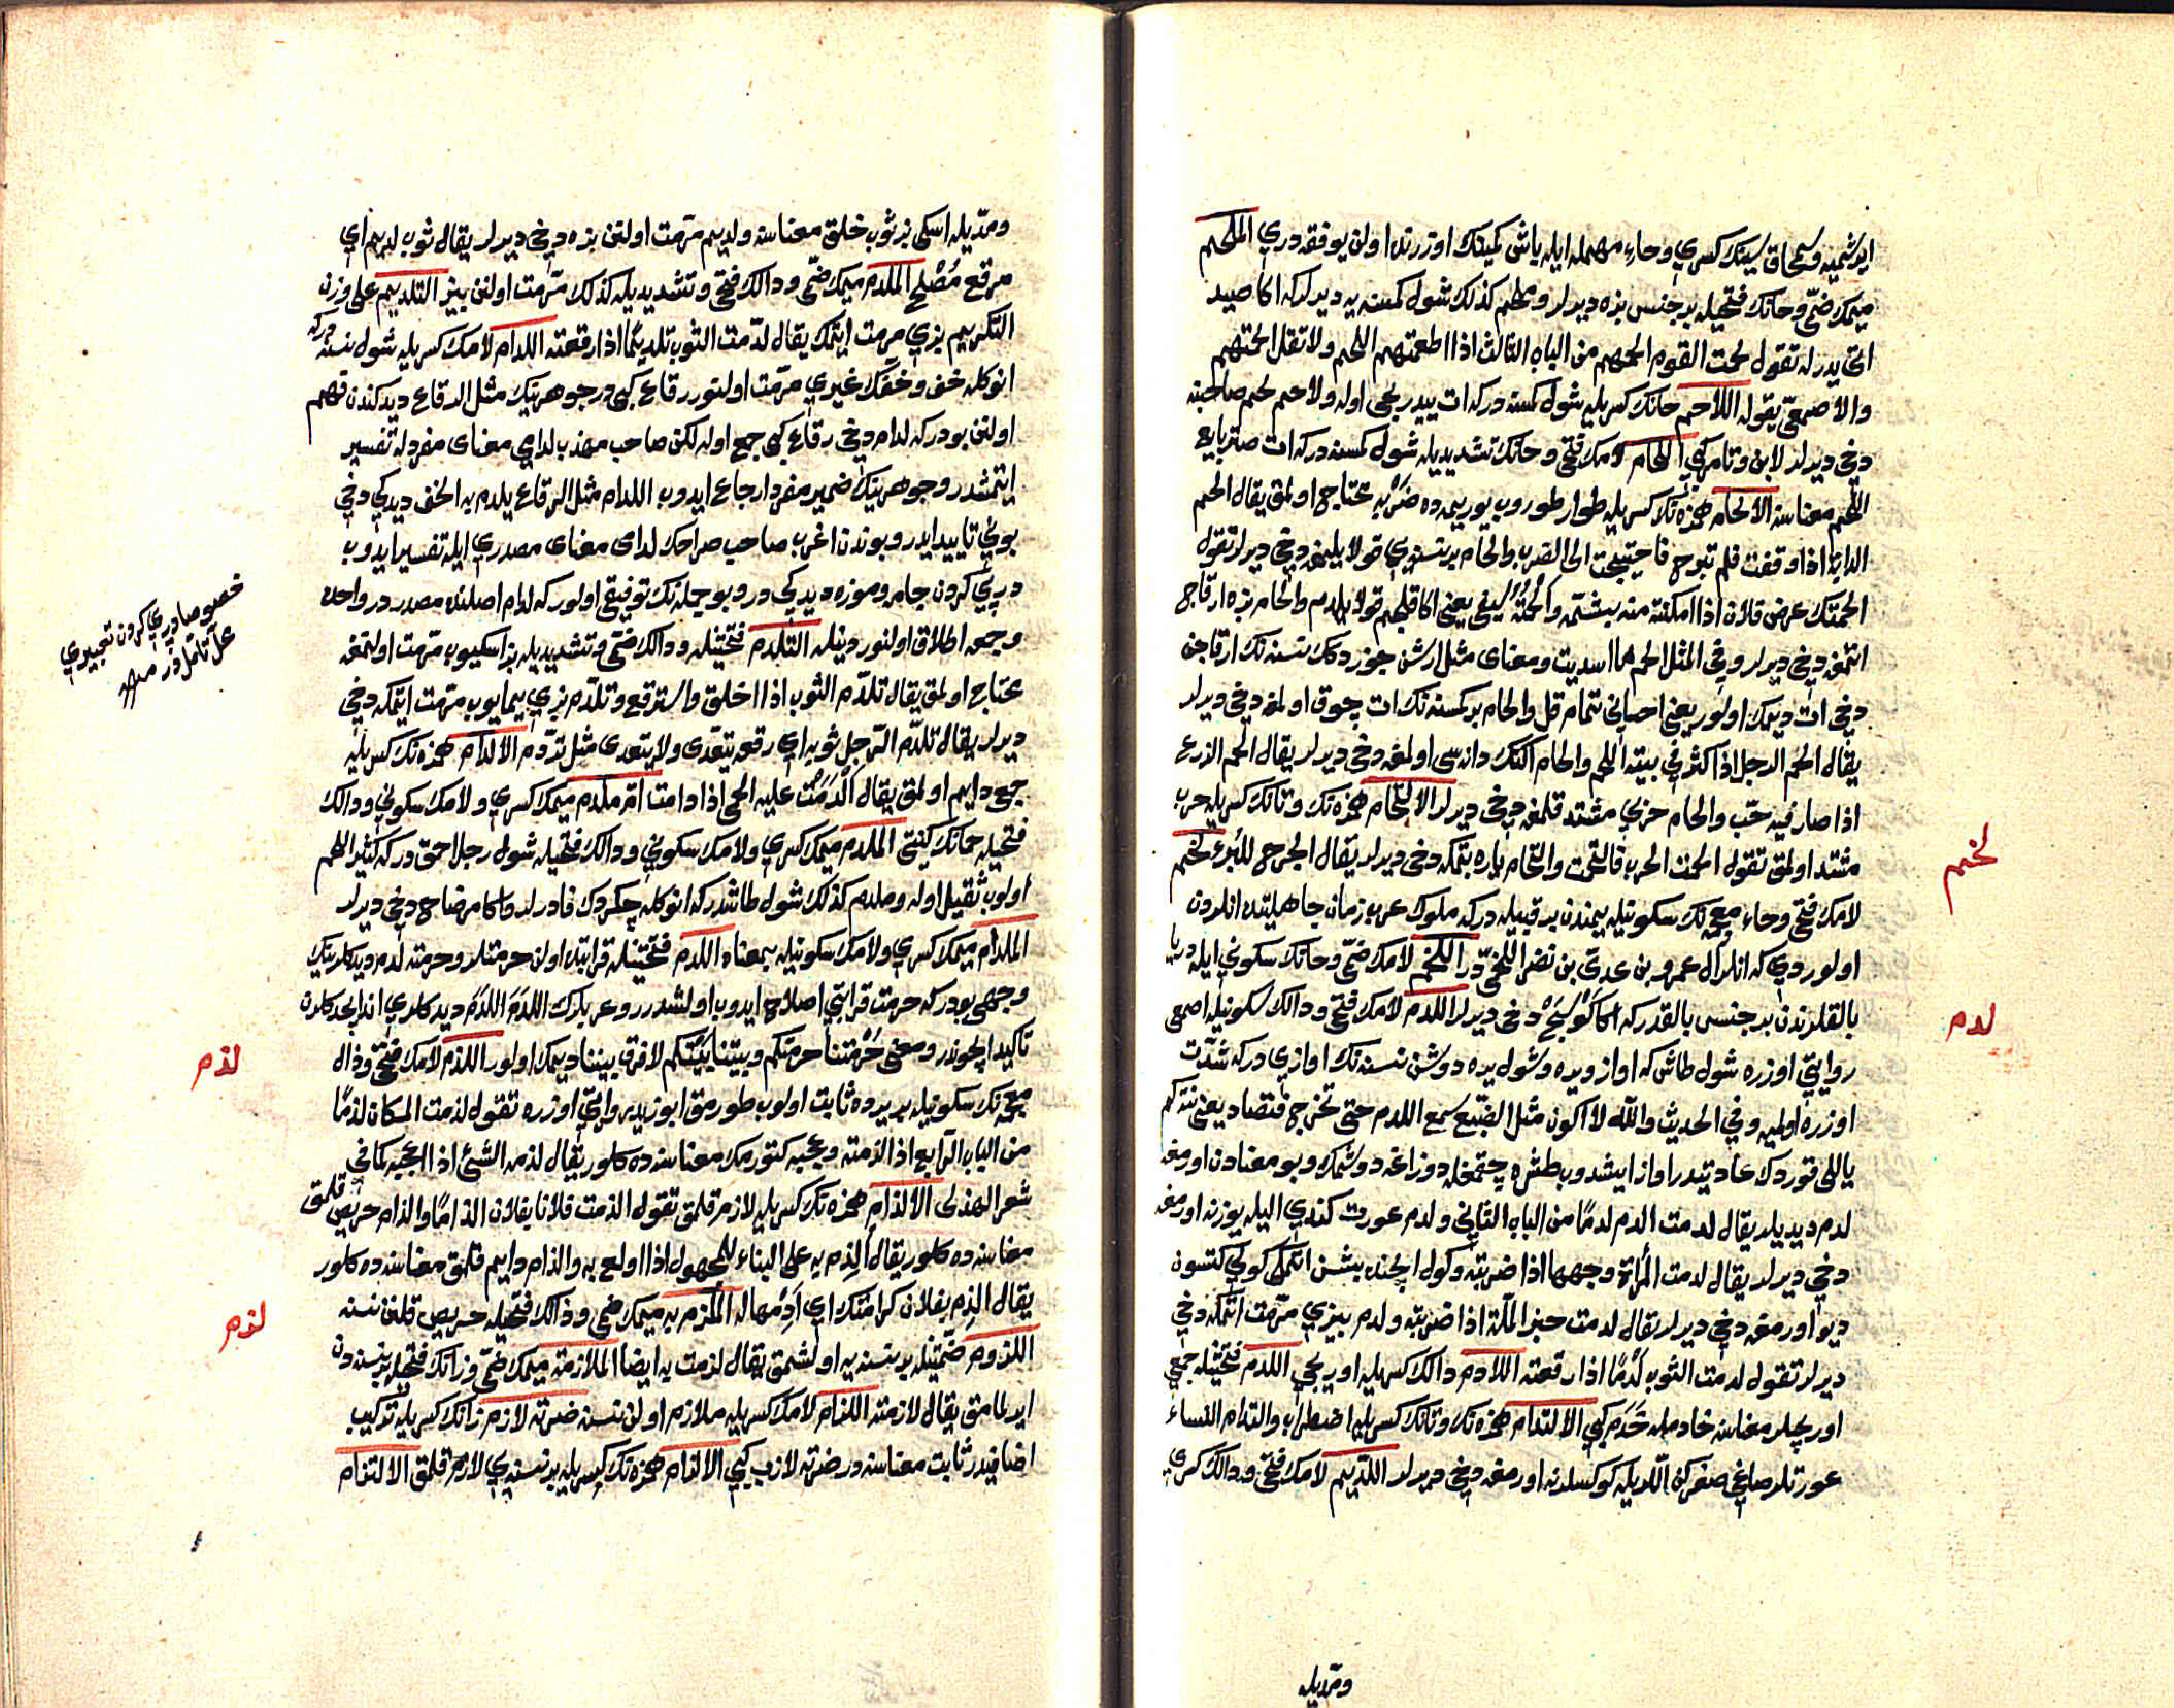 ايدر شميه وسمحاق سينك كسري وحاء مهمله ايله ياش كميكك اوزرنده اولن يوفقه دري الملحم
ميمك ضمّى وحانك فتحيله بر جنس بزه ديرلر وملحم كذلك شول كمسنه يه ديرلر كه اكا صيد
اتى يدرلر تقول لحمت القوم الحمهم من الباب الثالث اذا اطعمتهم اللحم ولا تقل الحمتهم
والاصمعىّ يقوله اللاحم حانك كسريله شول كمسنه دركه ات ييدرلجى اوله ولاحم لحم صاحبنه
دخي ديرلر لابن وتامر كبي اللحام لامك فتحى وحانك تشديديله شول كمسنه دركه ات صتر بايع
اللحم معناسنه الالحام همزه نك كسريله طوار طوروب يوريميه ده ضربه محتاج اولمق يقال الحم
الدابة اذا وقفت فلم تبرح فاحتيجت الى الضرب والحام بر نسنه يي قولايلمغه دخي ديرلر تقول
الحمتك عرض فلان اذا امكنته منه بشتمه والحمته سيفى يعنى اكا قلجم قولايلدم والحام بزه ارقاج
اتمغه دخي ديرلر وفي المثل الحم ما اسديت ومعناى مثل ارش جوزدك نسنه نك ارقاجن
دخي ات ديمك اولور يعنى احسانى تمام قل والحام بر كمسنه نك ات چوق اولمغه دخي ديرلر
يقال الحم الرجل اذا كثر في بيته اللحم والحام اكنك دانه سى اولمغه دخى ديرلر يقال الحم الزرع
اذا صار فيه حبّ والحام حربي مشتد قلمغه دخي ديرلر الالتحام همزه نك وتانك كسريله حرب
مشتد اولمق تقول الحمت الحرب فالتحمت والتحام ياره بتمكه دخى ديرلر يقال الجرح للبرء لخم
لخم
لامك فتحى وخاء معجمه نك سكونيله يمندن بر قبيله دركه ملوك عرب زمان جاهليتده انلردن
اولوردي كه انلر ال عمرو بن عدىّ بن نصر اللخمىّ در اللخم لامك ضمّى وخانك سكوني ايله دريا
بالقلرندن بر جنس بالقدر كه اكا كوسج دخى ديرلر اللدم لامك فتحى ودالك سكونيله اصمعى
لدم
روايتى اوزره شول طاش كه اواز ويره وشول يره دوشن نسنه نك اوازي دركه شدّت
اوزره اولميه وفي الحديث والله لا اكون مثل الضبع تسمع اللدم حتى تخرج فتصاد يعنى نته كم
لدم ديديلر يقال لدمت الدم لدمًا من الباب الثاني ولدم عورت كندي اليله يوزنه اورمغه
دخي ديرلر يقال لدمت المرأة وجهها اذا ضربته وكول ايچنده بشن اتمكى كولي كتسون
ديو اورمغه دخي ديرلر يقال لدمت خبز الملّة اذا ضربته ولدم بيزي مرّمت اتمكه دخي
ديرلر تقول لدمت الثوب لدمًا اذا رقعته اللادم دالك كسريله اوريجي اللدم فتحتيله جمعى
اوريجيلر معناسنه خادمله خدم كبي الالتدام همزه نك وتانك كسريله اضطراب والتدام النساء
عورتلر صاغي صغركن اللريله كوكسلرنه اورمغه دخي ديرلر اللديم لامك فتحى ودالك كسري
ومدّيله
ومدّيله اسكى بز ثوب خلق معناسنه ولديم مرّمت اولنن بزه دخي ديرلر يقال ثوب لديم اي
مرقع مُصْلح الملدم ميمك ضمّى ودالك فتحى وتشديديله كذلك مرّمت اولنن بيز التلديم على وزن
التكريم بزي مرّمت ايتمك يقال لدّمت الثوب تلديمًا اذا رقعته اللدام لامك كسريله شول نسنه دركه
انوكله خف وخفك غيري مرّمت اولنور رقاع كبى در جوهرينك مثل الرقاع ديدكندن فهم
اولنن بودر كه لدام دخي رقاع كبى جمع اوله لكن صاحب مهذب لدامي معناى مفردله تفسير
ايتمشدر وجوهرينك ضمير مفرد ارجاع ايدوب اللدام مثل الرقاع يلدم به الخف ديدكي دخي
بوني تاييد ايدر وبوندن اغرب صاحب صراحك لدامى معناى مصدري ايله تفسير ايدوب
در پي كردن جامه وموزه ديديكي در وبو جمله نك توفيقى اولور كه لدام اصلنده مصدر در واحده
خصوصا درپي كردن تعبيري
محلّ تأمّل در منه
وجمعه اطلاق اولنور دينله التلدم فتحتينله ودالك ضمّى وتشديديله بز اسكيوب مرّمت اولنمغه
محتاج اولمق يقال تلدّم الثوب اذا اخلق واسترقع وتلدّم بزي يمايوب مرّمت ايتمكه دخي
ديرلر يقال تلدّم الرّجل ثوبه اي رقعه يتعدى ولا يتعدى مثل تردّم الالدام همزه نك كسريله
حمى دايم اولمق يقال اَلْدَمَتْ عليه الحمى اذا دامت امّ ملدم ميمك كسري ولامك سكوني ودالك
فتحيله حمانك كنيتى الملدم ميمك كسري ولامك سكوني ودالك فتحيله شول رجل احمق دركه كثير اللحم
اولوب ثقيل اوله وملدم كذلك شول طاشدر كه انوكله چكردك قادرلر واكا مرضاح دخي ديرلر
الملدام ميمك كسري ولامك سكونيله بمعناه اللدم فتحتينله قرابتده اولن حرمتلر وحرمته لدم ديدكلرينك
وجهى بودر كه حرمت قرابتي اصلاح ايدوب اولشدرر وعربلرك اللدم اللدم ديدكلري
تاكيد ايچوندر ومعنى حُرمتنا حرمتكم وبيتنا بيتكم لا فرق بيننا ديمك اولور اللذم لامك فتحى وذال
لذم
معجمه نك سكونيله بر يرده ثابت اولوب طورمق ابو زيد روايتى اوزره تقول لذمت المكان لذمًا
من الباب الرّابع اذا لزمته وعجبه كتورمك معناسنه ده كلور يقال لذمه الشئ اذا اعجبه كما في
شعر الهذلى الالذام همزه نك كسريله لازم قلمق تقول الذمت فلانا بفلان الذامًا والذام حريص قلمق
معناسنه ده كلور يقال اُلذِم به على البناء للمجهول اذا اولع به والذام دايم قلمق معناسنه ده كلور
يقال الذم بفلان كرامتك اي اَدِمها له الملذم به ميمك ضمى وذالك فتحيله حريص قلنن نسنه
اللزوم ضمّتينله بر نسنه يه اولشمق يقال لزمت به ايضا الملازمة ميمك ضمّى وزانك فتحيله بر نسنه دن
لزم
ايرلمامق يقال لازمته اللزام لامك كسريله ملازم اولن نسنه ضربة لازم زانك كسريله تركيب
اضافيدر ثابت معناسنه در ضربة لازب كبي الالزام همزه نك كسريله بر نسنه يي لازم قلمق الالتزام